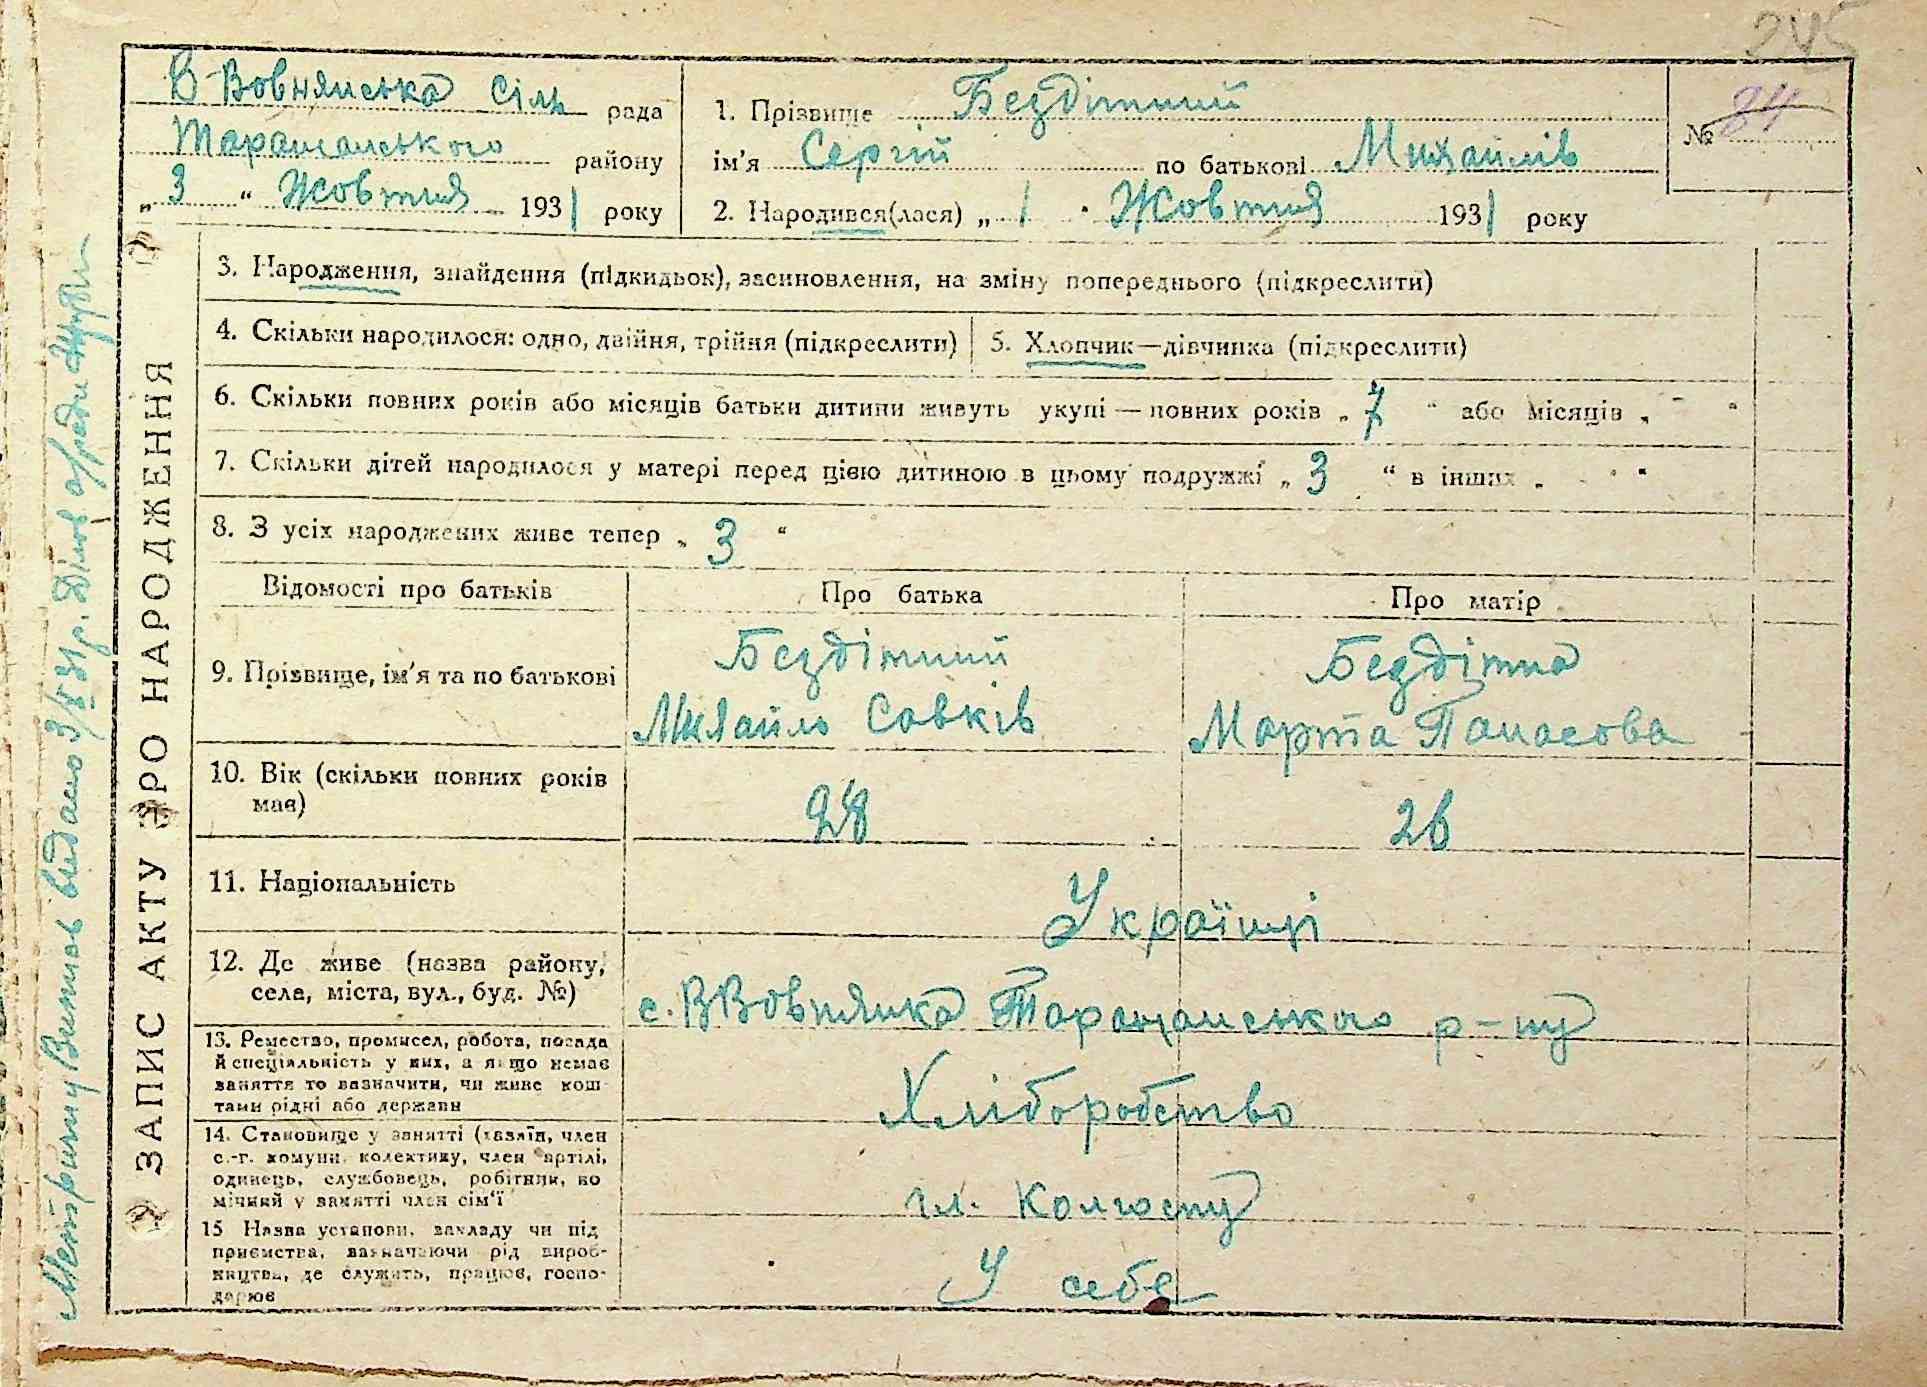 245
В-Вовнянська Сіль рада
Таращанського району
„ 3 “ Жовтня 1931 року
1. Прізвище Бездітний
ім'я Сергій по батькові Михайлів
2. Народився(лася) „ 1 " Жовтня 1931 року
№ 84
3. Народження, знайдення (підкидьок), засиновлення, на зміну попереднього (підкреслити)
4. Скільки народилося: одно, двійня, трійня (підкреслити)
5. Хлопчик—дівчинка (підкреслити)
6. Скільки повних років або місяців батьки дитини живуть укупі — повних років „ 7 “ або місяців „ - “
7. Скільки дітей народилося у матері перед цією дитиною в цьому подружжі „ 3 “ в інших „ “
8. З усіх народжених живе тепер „ 3 “
Відомості про батьків
Про батька
Про матір
9. Прізвище, ім'я та по батькові
Бездітний
Михайль Савків
Бездітна
Марта Панасова
10. Вік (скільки повних років
має)
28
26
11. Національність
Українці
12. Де живе (назва району,
села, міста, вул., буд. №)
с. ВВовнянка Таращанського р-ну
13. Ремество, промисел, робота, посада
й спеціяльність у них, а якщо немає
заняття то зазначити, чи живе кош-
тами рідні або держави
Хліборобство
14. Становище у занятті (хазяїн, член
с.-г. комуни, колективу, член артілі,
одинець, службовець, робітник, по
мічний у занятті член сім'ї
чл. Колгоспу
15 Назва установи, закладу чи під
приємства, зазначаючи рід вироб-
ництва, де служить, працює, госпо-
дарює
У себе
ЗАПИС АКТУ ПРО НАРОДЖЕННЯ
Метричну Виписв видано 3/X 31 р. Діловод с/ради